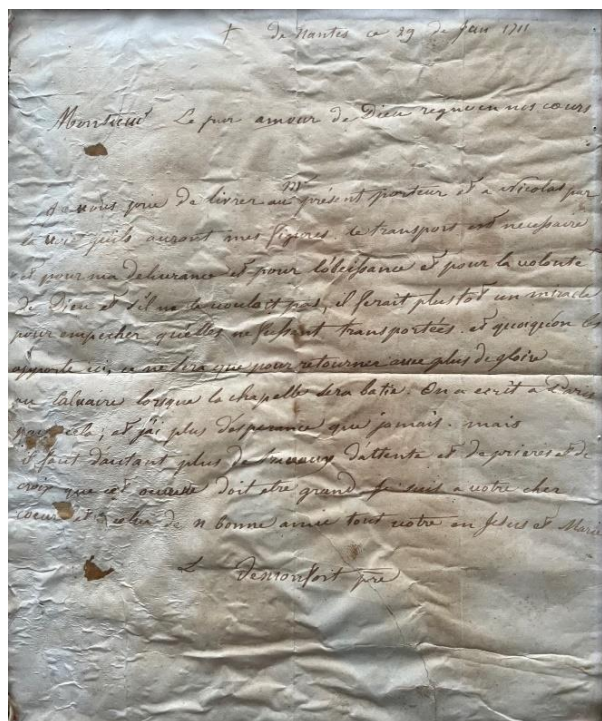 † de nantes ce 29 de Jan 1711
Monsieur Le pur amour de Dieu regne en nos cœurs
Je vous prie de livrer au présent porteur et a Nicolas par
qu'ils auront mes figures. le transport est necessaire
et pour ma delivrance et pour l'obeissance et pour la volonte
de Dieu et s'il ne le voulait pas, il ferait plustot un miracle
pour empecher qu'elles ne fussent transportées. et quoiqu'on les
apporte ici, ce ne sera que pour retourner avec plus de gloire
au Calvaire lorsque la chapelle sera batie. On a ecrit a Paris
pour cela; et j'ai plus desperance que jamais. mais
il faut dautant plus de d'attente et de prieres et de
croix que cet doit etre grand. je suis a votre cher
coeur et a celui de n bonne amie tout votre en Jesus et Marie
L demonfort pre